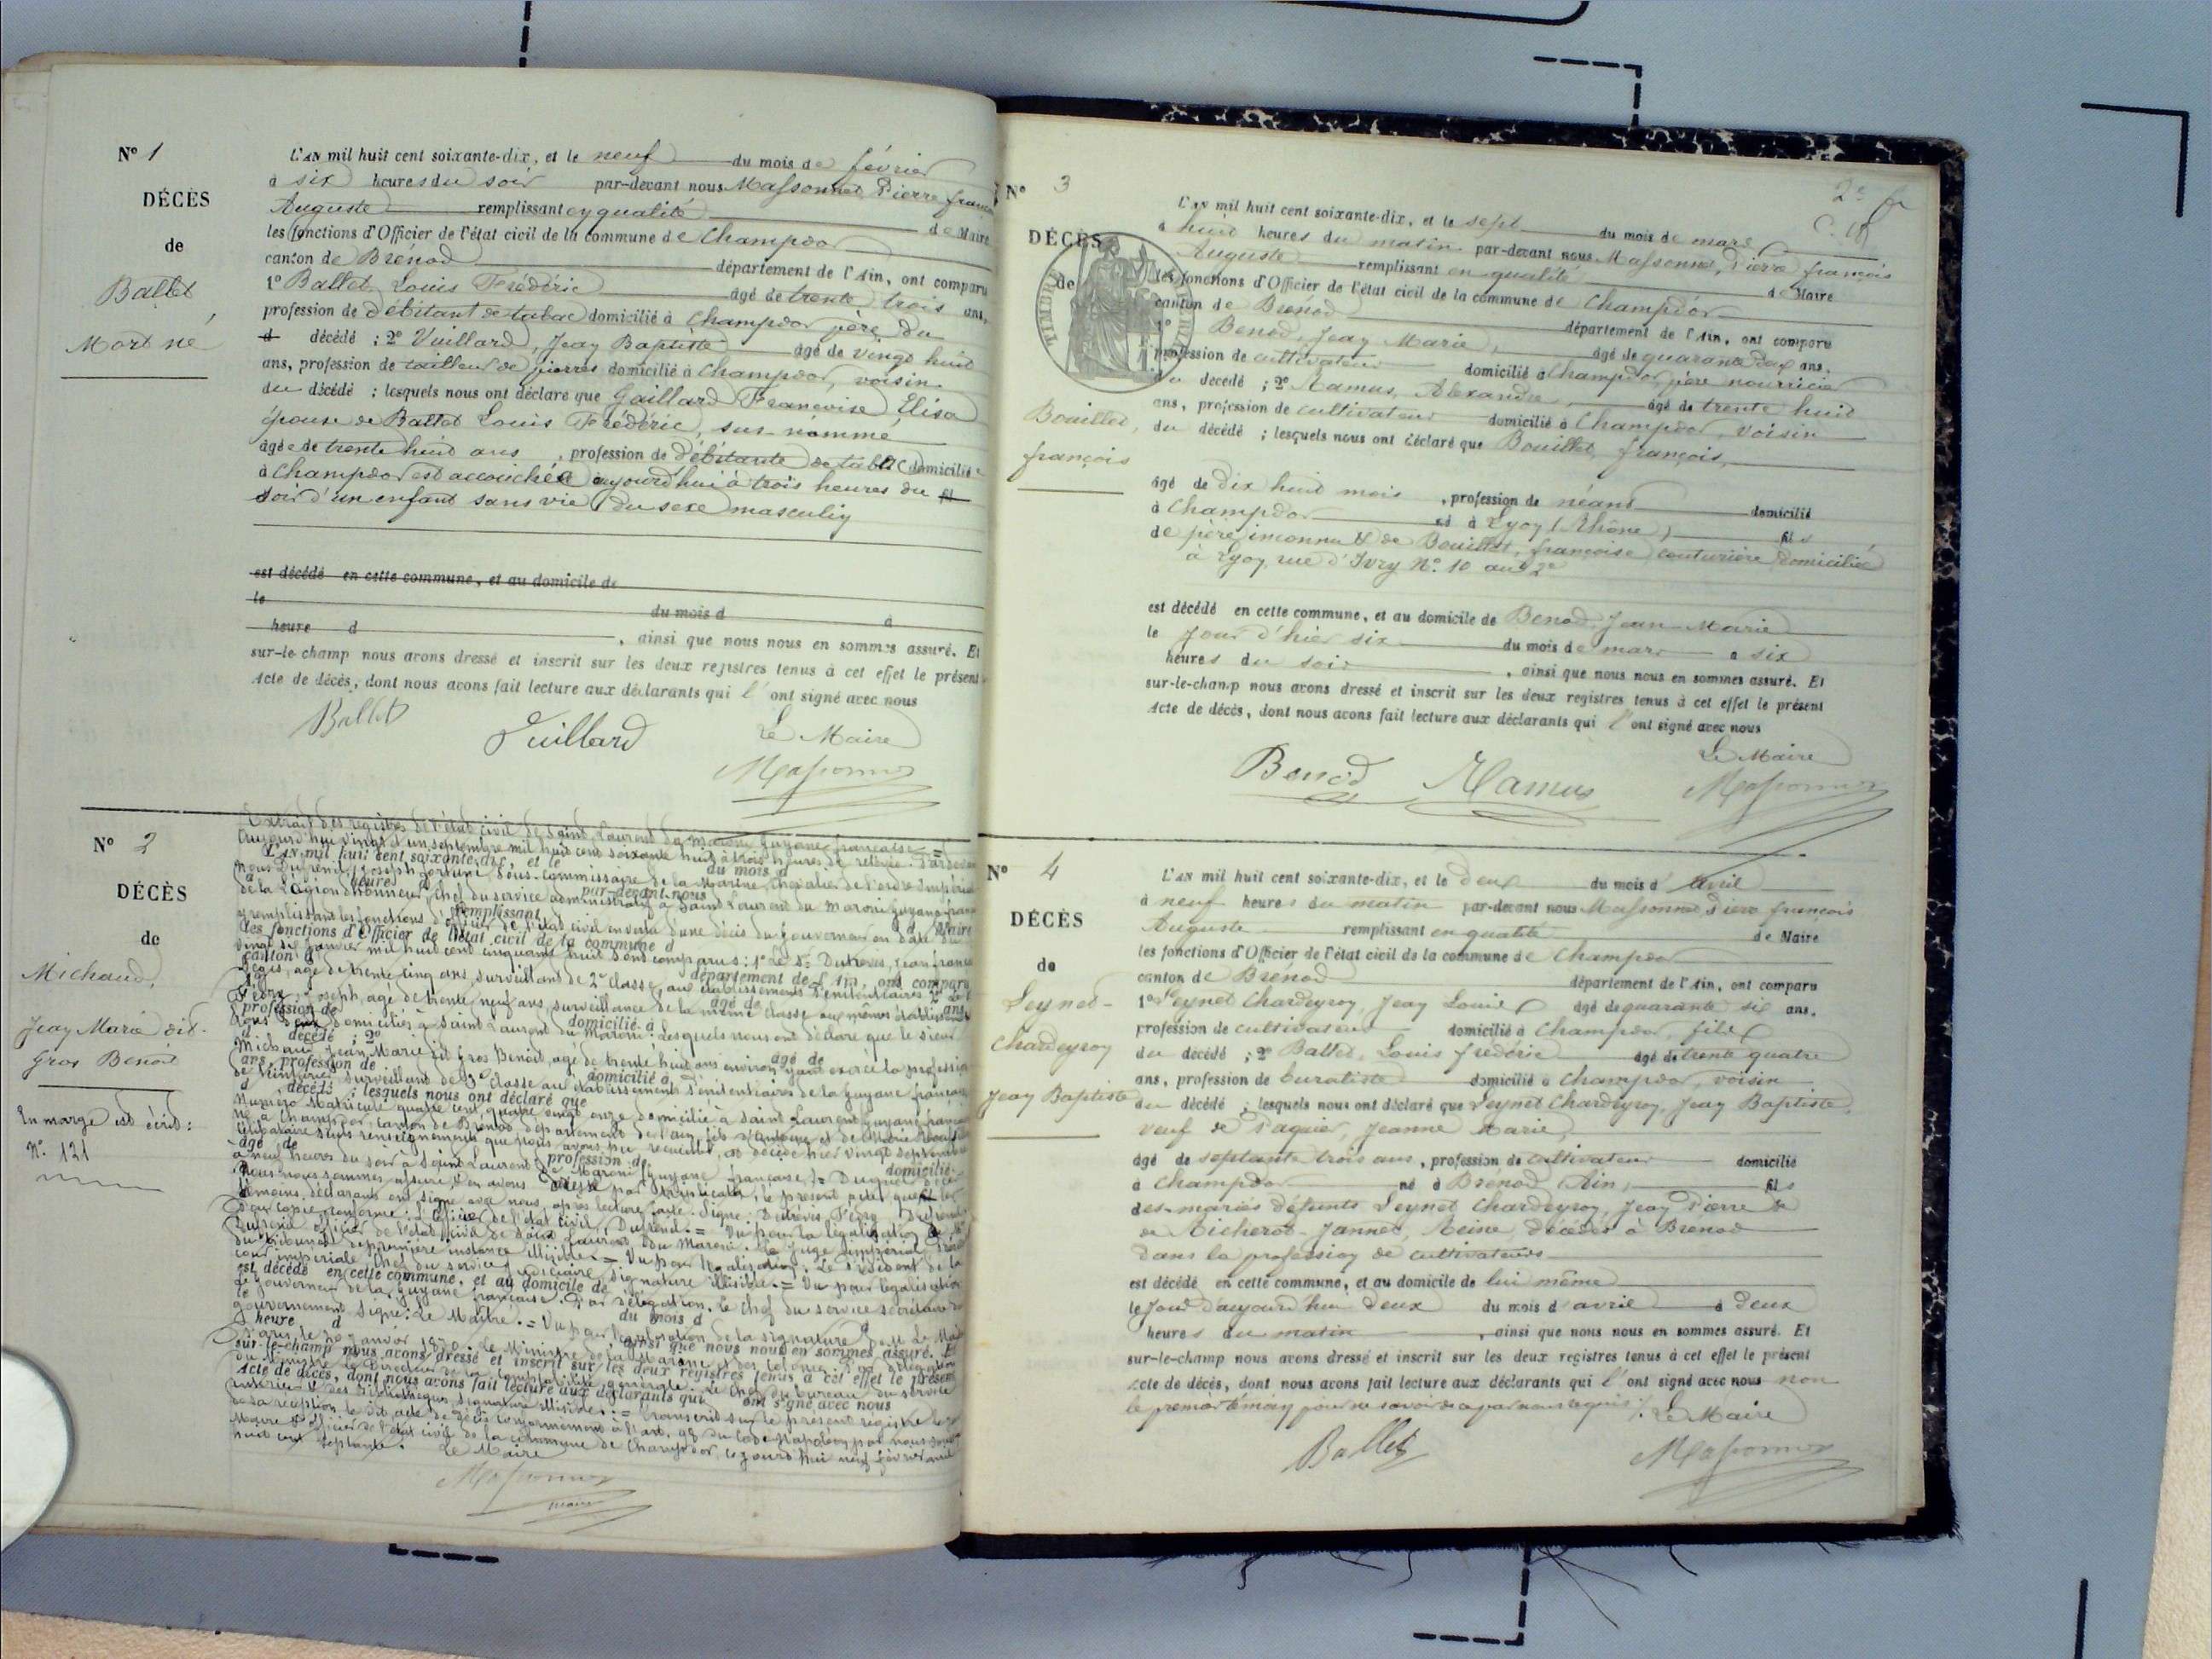 N° 1
DÉCÈS
de
Ballet
Mort né
L'AN mil huit cent soixante-dix, et le neuf du mois de février
à six heures du soir par-devant nous Massonnet Pierre françois
Auguste remplissant en qualité de Maire
les fonctions d'Officier de l'état civil de la commune de Champdor
canton de Brénod département de l'Ain, ont comparu
1° Ballet Louis Frédéric âgé de trente trois ans,
profession de débitant de tabac domicilié à Champdor père du
d décédé ; 2° Vuillard, Jean Baptiste âgé de vingt huit
ans, profession de tailleur de pierres domicilié à Champdor, voisin
du décédé ; lesquels nous ont déclaré que Gaillard Françoise Elisa
épouse de Ballet Louis Frédéric, sus-nommé
âgée de trente huit ans, profession de débitante de tabac domiciliée
à Champdor est accouchée aujourd'hui à trois heures du fil
soir d'un enfant sans vie du sexe masculin
est décédé en cette commune, et au domicile de
le du mois d à
heure d , ainsi que nous nous en sommes assuré. Et
sur-le-champ nous avons dressé et inscrit sur les deux registres tenus à cet effet le présent
Acte de décès, dont nous avons fait lecture aux déclarants qui l'ont signé avec nous
Ballet Vuillard Le Maire
Massonnet
N° 2
DÉCÈS
de
Michaud,
Jean Marie dit
Gros Benoit
En marge est écrit :
N° 121
Extrait des registres de l'état civil de Saint Laurent du Maroni Guyane française =
Aujourd'hui vingt un septembre mil huit cent soixante huit à trois heures de relevée. Pardevant
L'AN mil huit cent soixante-dix, et le du mois d
nous Dufrénil, Joseph Sous-Commissaire de la Marine, Chevalier de l'ordre Impérial
heure par-devant nous
de la Légion d'honneur, Chef du service administratif à Saint Laurent du Maroni Guyane française
remplissant d Maire
remplissant les fonctions d'officier de l'état civil en vertu d'une décis. du Gouverneur en date du
les fonctions d'Officier de l'état civil de la commune d
vingt janvier mil huit cent cinquante huit sont comparus : 1° le Sr
canton d
âgé de trente cinq ans, surveillant de 2e classe aux établissements pénitentiaires 2° le
département de l'Ain, ont comparu
Joseph, âgé de trente neuf ans, surveillance de la même classe aux mêmes établissements
âgé de ans,
profession de domicilié à
tous deux domiciliés à Saint Laurent du Maroni. Lesquels nous ont déclaré que le sieur
d décédé ; 2°
Michaud Jean Marie dit Gros Benoit, âgé de trente huit ans environ ayant exercé la profession
âgé de
ans, profession de domicilié à
surveillant de 3e classe au établissements pénitentiaires de la Guyane française
d décédé ; lesquels nous ont déclaré que
Numéro Matricule quatre cent quatre vingt onze domicilié à Saint Laurent Guyane française
né à Champdor, canton de Brénod département de l'ain, fils
célibataire renseignements que nous avons pu recueillir, est décédé hier vingt septembre
âgé de profession de domicilié
à neuf heures du soir à Saint Laurent du Maroni (Guyane française) =
nous nous sommes assuré, et en avons dressé par le présent acte que les
témoins, déclarants ont signé avec nous après lecture faite.
Pour copie conforme. L'officier de l'état civil, Dufrénil. = Vu pour la légalisation de
officier de l'état civil de Saint Laurent du Maroni. Le Juge Impérial
du tribunal de première instance illisible. = Vu pour légalisation. Le Président de la
cour impériale chef du service judiciaire, signature illisible. = Vu pour légalisation
est décédé en cette commune, et au domicile de
Le Gouverneur de la Guyane française. Par délégation. Le Chef du service secrétaire du
le du mois d
gouvernement signé : Le Maître. = Vu pour légalisation de la signature de
heure d , ainsi que nous nous en sommes assuré. Et
Paris le 20 janvier 1870. Le Ministre de la Marine et des Colonies. Par délégation
sur-le-champ nous avons dressé et inscrit sur les deux registres tenus à cet effet le présent
du Ministre le Directeur de la comptabilité générale. Le Chef du bureau du service
Acte de décès, dont nous avons fait lecture aux déclarants qui ont signé avec nous
intérieur et des bibliothèques, signature illisible. = Transcrit sur le présent registre
de sa réception le dit acte de décès conformément à l'art. 98 du Code Napoléon par nous
Maire et officier de l'état civil de la commune de Champdor, ce jourd'hui neuf février mil
huit cent septante. Le Maire
Massonnet
maire
2e f
N° 3
DÉCÈS
de
Bouillet,
françois
L'AN mil huit cent soixante-dix, et le sept du mois de mars
à huit heures du matin par-devant nous Massonnet, Pierre françois
Auguste remplissant en qualité de Maire
les fonctions d'Officier de l'état civil de la commune de Champdor
canton de Brénod département de l'Ain, ont comparu
1° Benod, Jean Marie, âgé de quarante deux ans,
profession de cultivateur domicilié à Champdor, père nourricier
du décédé ; 2° Ramus, Alexandre, âgé de trente huit
ans, profession de cultivateur domicilié à Champdor, voisin
du décédé ; lesquels nous ont déclaré que Bouillet, françois,
âgé de dix huit mois, profession de néant domicilié
à Champdor né à Lyon (Rhône) fils
de père inconnu & de Bouillet, françoise couturière domiciliée
à Lyon, rue d'Ivry N° 10 au 2e
est décédé en cette commune, et au domicile de Benod, Jean Marie
le jour d'hier six du mois de mars à six
heures du soir , ainsi que nous nous en sommes assuré. Et
sur-le-champ nous avons dressé et inscrit sur les deux registres tenus à cet effet le présent
Acte de décès, dont nous avons fait lecture aux déclarants qui l'ont signé avec nous
Le Maire
Benod Ramus Massonnet
N° 4
DÉCÈS
de
Seynet-
Chardeyron
Jean Baptiste
L'AN mil huit cent soixante-dix, et le deux du mois d'avril
à neuf heures du matin par-devant nous Massonnet Pierre françois
Auguste remplissant en qualité de Maire
les fonctions d'Officier de l'état civil de la commune de Champdor
canton de Brénod département de l'Ain, ont comparu
1° Seynet Chardeyron, Jean Louis âgé de quarante six ans,
profession de cultivateur domicilié à Champdor, fils
du décédé ; 2° Ballet, Louis frédéric âgé de trente quatre
ans, profession de buraliste domicilié à Champdor, voisin
du décédé ; lesquels nous ont déclaré que Seynet Chardeyron, Jean Baptiste,
veuf de Paquier, Jeanne Marie,
âgé de septante trois ans, profession de cultivateur domicilié
à Champdor né à Brénod (Ain) fils
des mariés défunts Seynet Chardeyron, Jean Pierre &
de Richerot-Jannet, Reine, décédés à Brénod
dans la profession de cultivateurs
est décédé en cette commune, et au domicile de lui même
le jour d'aujourd'hui deux du mois d'avril à deux
heures du matin , ainsi que nous nous en sommes assuré. Et
sur-le-champ nous avons dressé et inscrit sur les deux registres tenus à cet effet le présent
Acte de décès, dont nous avons fait lecture aux déclarants qui l'ont signé avec nous non
le premier témoin pour ne savoir de ce par nous requis. Le Maire
Ballet Massonnet